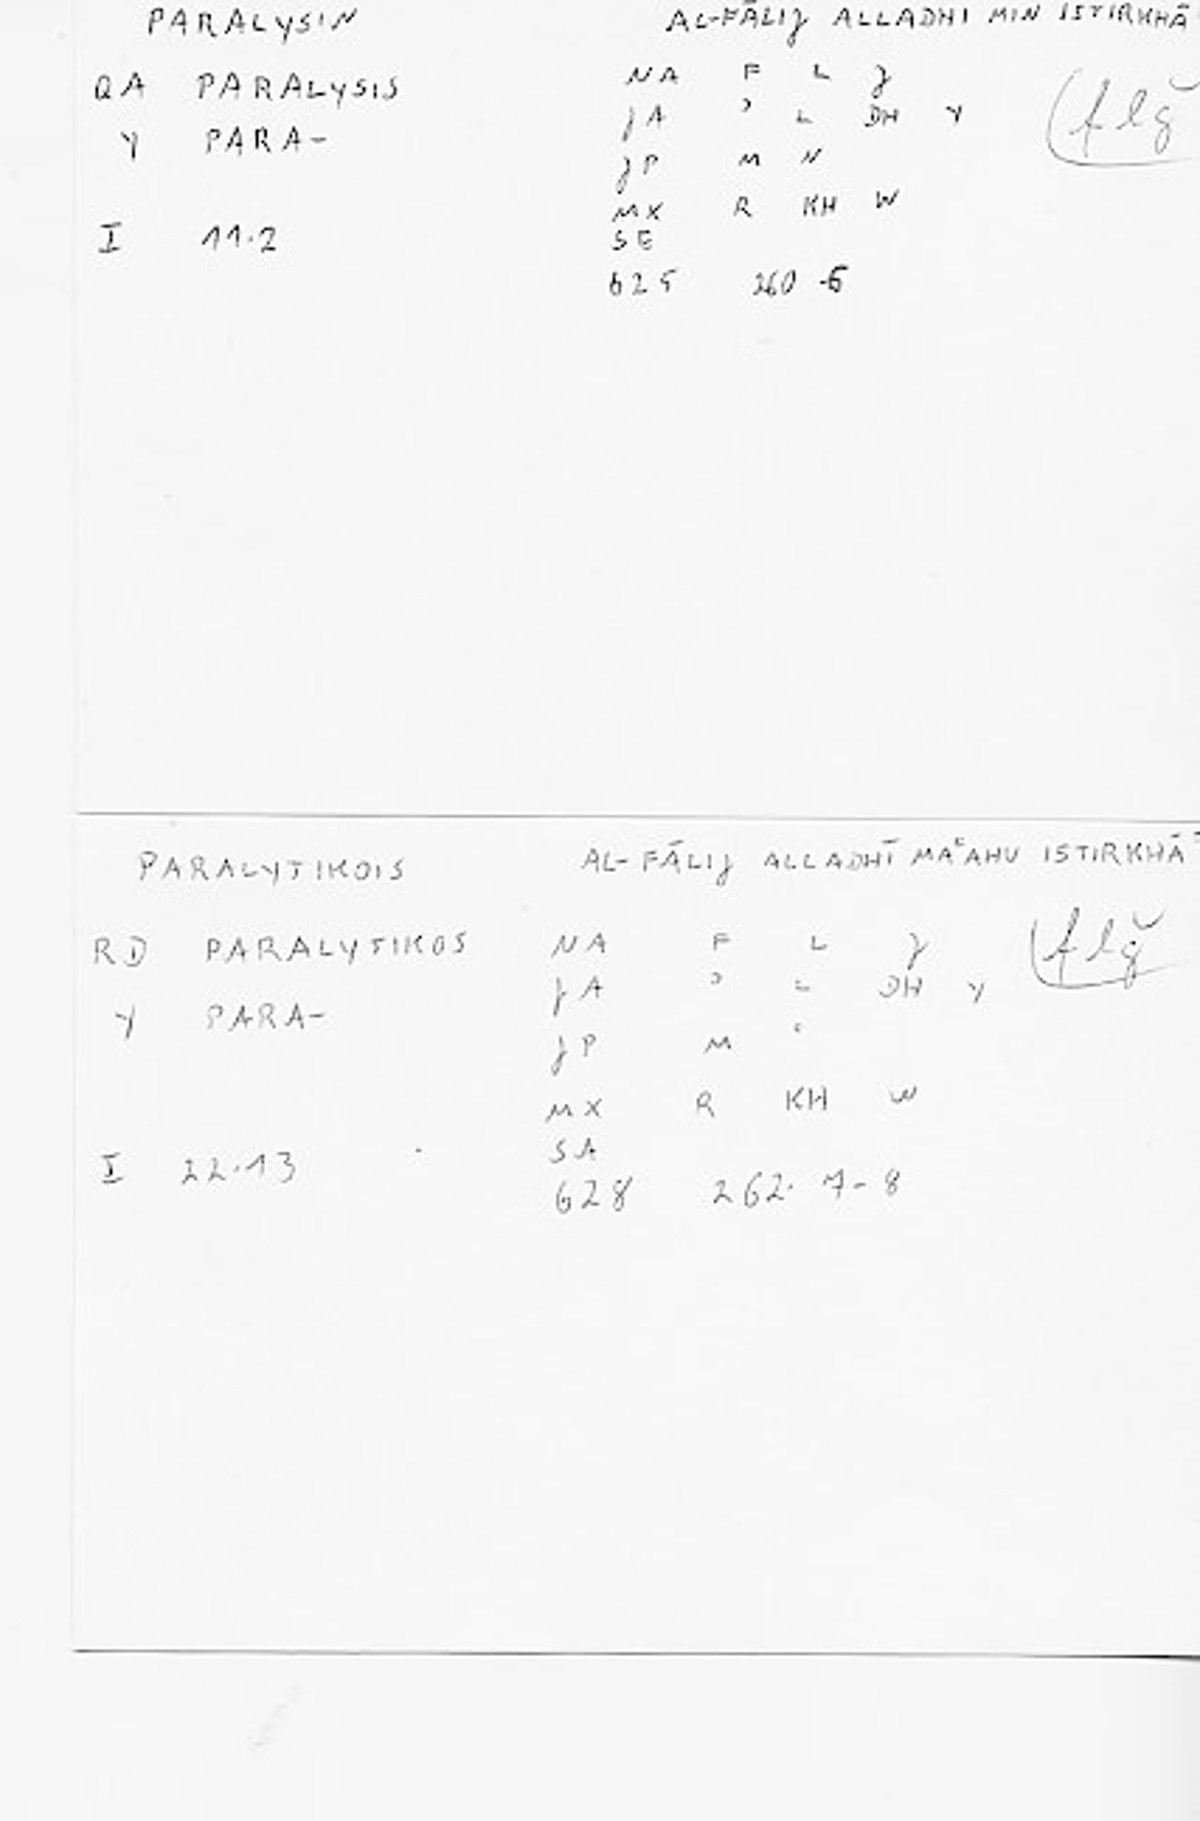 PARALYSIN AL-FĀLIJ ALLADHI MIN ISTIRKHĀ
QA PARALYSIS NA F L J
Y PARA- JA ʾ L DH Y (flǧ
JP M N
MX R KH W
I 11.2 SE
625 260 -6
PARALYTIKOIS AL-FĀLIJ ALLADHĪ MAʿAHU ISTIRKHĀʾ
RD PARALYTIKOS NA F L J (flǧ
Y PARA- JA ʾ L DH Y
JP M ʿ
MX R KH W
I 22.13 SA
628 262. 7-8